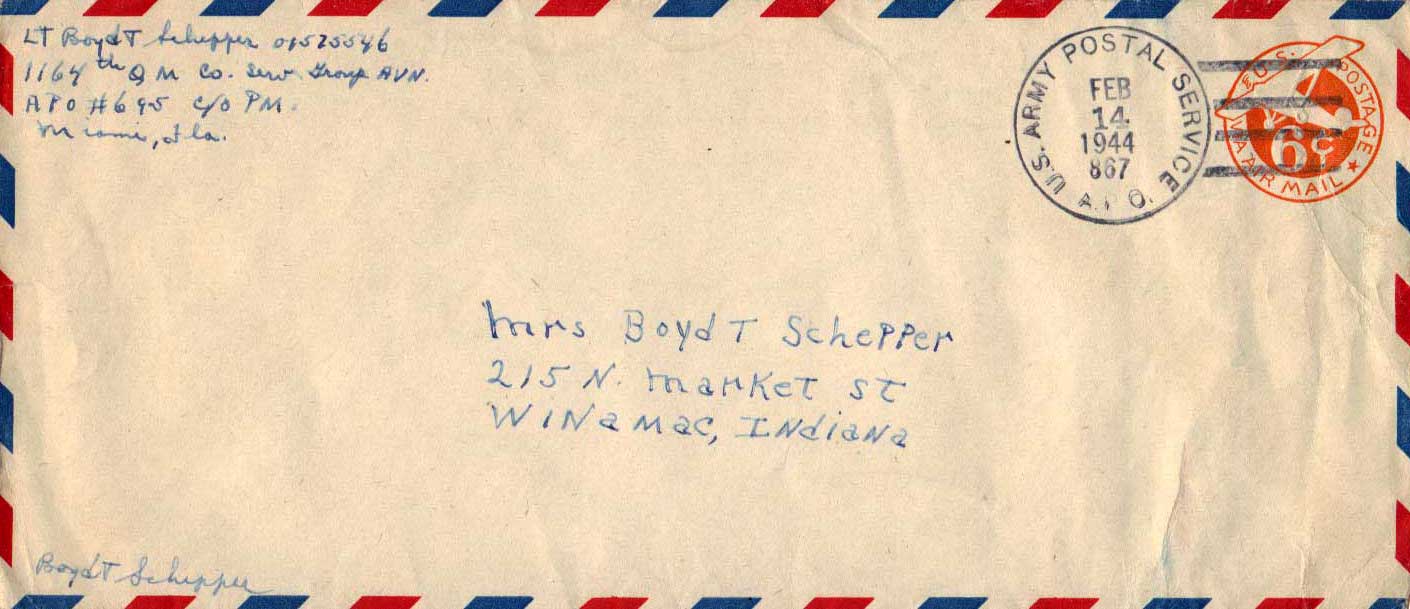 LT Boyd T Schepper 01575546
1164th Q M Co. Serv. Group AVN.
A P O #695 c/o PM.
Miami, Fla.
U.S. ARMY POSTAL SERVICE
FEB
14
1944
867
A.P.O.
U.S. POSTAGE
6¢
VIA AIR MAIL
Mrs Boyd T Schepper
215 N. Market St
Winamac, Indiana
Boyd T Schepper